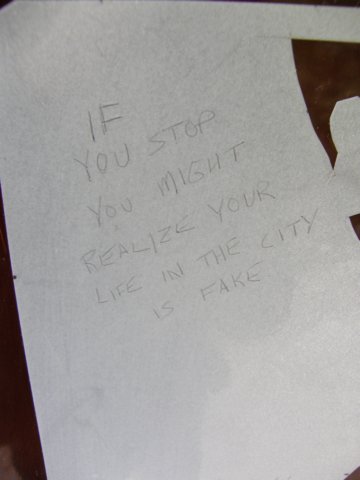 IF
YOU STOP
YOU MIGHT
REALIZE YOUR
LIFE IN THE CITY
IS FAKE.